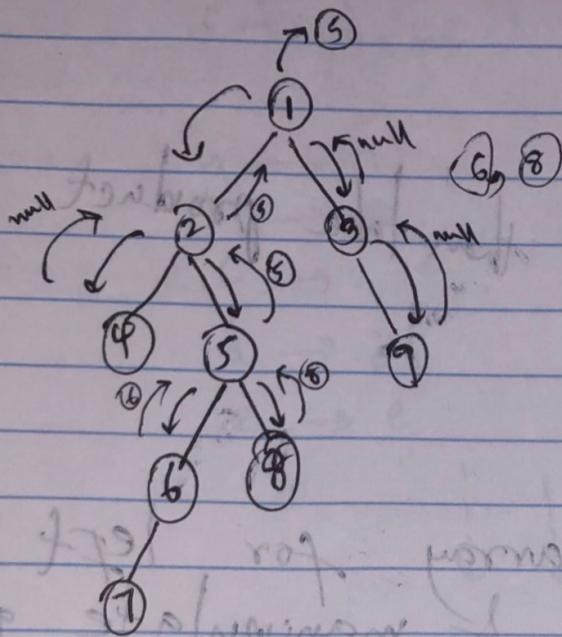 5
1
null
6, 8
null
2
5
3
null
5
4
5
9
6
8
6
8
7